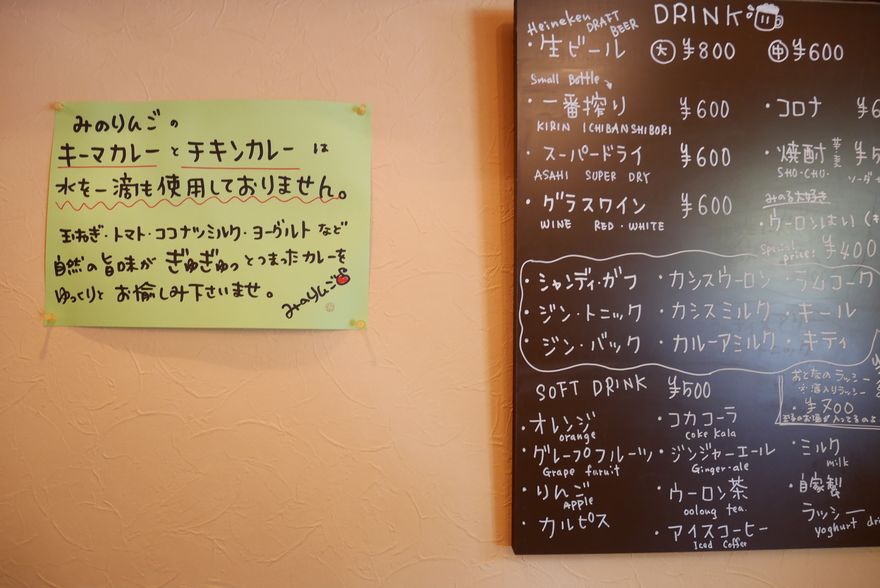 みのりんごの
キーマカレーとチキンカレーは
水を一滴も使用しておりません。
玉ねぎ・トマト・ココナツミルク・ヨーグルトなど
自然の旨味がぎゅぎゅっとつまったカレーを
ゆっくりとお愉しみ下さいませ。
みのりんご
DRINK
Heineken DRAFT BEER
・生ビール 大 ¥800 中 ¥600
Small Bottle
・一番搾り ¥600
KIRIN ICHIBANSHIBORI
・スーパードライ ¥600
ASAHI SUPER DRY
・グラスワイン ¥600
WINE RED・WHITE
・コロナ
・焼酎
SHO-CHU
みのる大好き
・ウーロンはい
Special price! ¥400
・シャンディ・ガフ ・カシスウーロン ・ラムコーク
・ジン・トニック ・カシスミルク ・キール
・ジン・バック ・カルーアミルク ・キティ
SOFT DRINK ¥500
・オレンジ
orange
・グレープフルーツ
Grape furuit
・りんご
Apple
・カルピス
・コカコーラ
coke kala
・ジンジャーエール
Ginger-ale
・ウーロン茶
oolong tea.
・アイスコーヒー
Iced Coffee
おとなのラッシー
※酒入りラッシー
・¥700
・ミルク
milk
・自家製
ラッシー
yoghurt